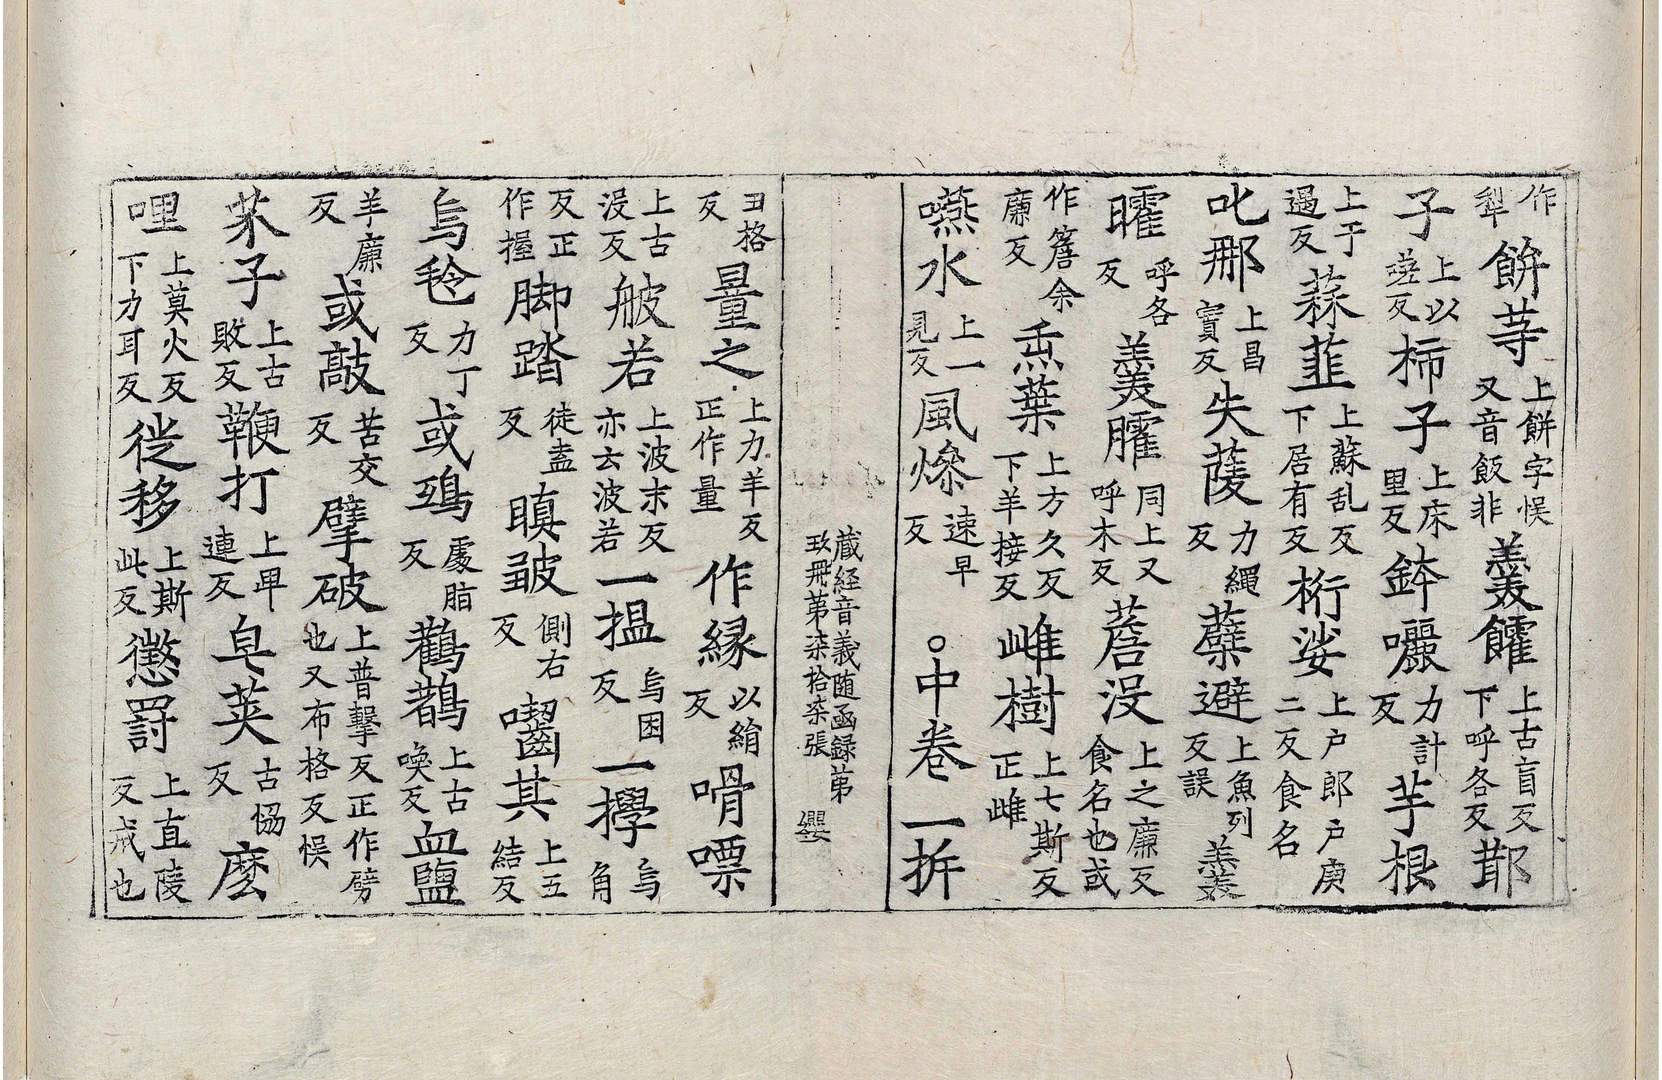 作犁餅䓁上餅字悮又音飯非羹臛上古盲反下呼各反耶
子上以嗟反柿子上床里反鉢囇力計反芋根
上于遇反蒜韮上蘇乱反下居有反桁娑上户郎户庚二反食名
叱那上昌寳反失薐力繩反蘖避上魚列反誤羹
矐呼各反羹臛同上又呼木反薝没上之廉反食名也或
作簷余廉反缹葉上方久反下羊接反雌樹上七斯反正雌
嚥水上一見反風燥速早反○中卷一㧳
藏経音義随函録苐玖册苐柒拾柒張 纓
丑格反量之上力羊反正作量作緣以絹反嗗嘌
上古没反般若上波末反亦云波若一揾烏困反一攪烏角
反正作握脚踏徒盍反瞋皷側右反囓其上五結反
烏毺力丁反或鴟處脂反鸛鵲上古喚反血鹽
羊廉反或敲苦交反擘破上普擊反正作劈也又布格反悮
茉子上古敗反鞭打上卑連反皁莢古恊反麽
哩上莫火反下力耳反徙移上斯此反懲罸上直陵反戒也